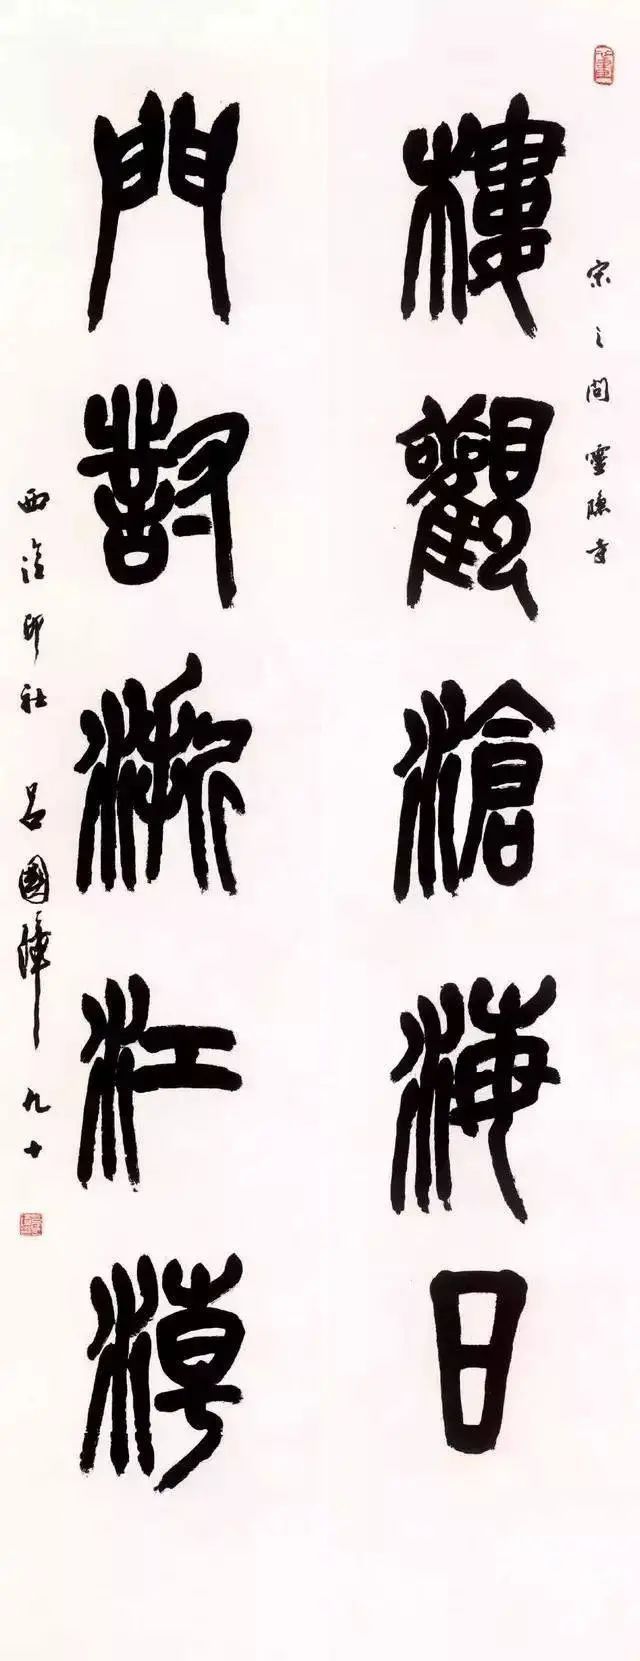 宋之問靈隱寺
樓觀滄海日
門對浙江潮
西泠印社 呂國璋九十